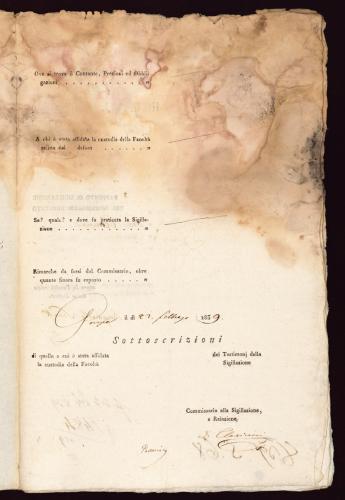 Ove si trova il Contante, Preziosi ed Obbli-
gazioni . . . . . . . . . . . »
A chi è stata affidata la custodia della Facoltà
relitta dal defunto . . . . . . »
Se? quale? e dove fu praticata la Sigilla-
zione . . . . . . . . . . . . . »
Rimarche da farsi del Commissario, oltre
quanto finora fu esposto . . . . . »
li di 22 1839
Sottoscrizioni
di quello a cui è stata affidata
la custodia della Facoltà
dei Testimonj della
Sigillazione
Commissario alla Sigillazione,
e Relazione,